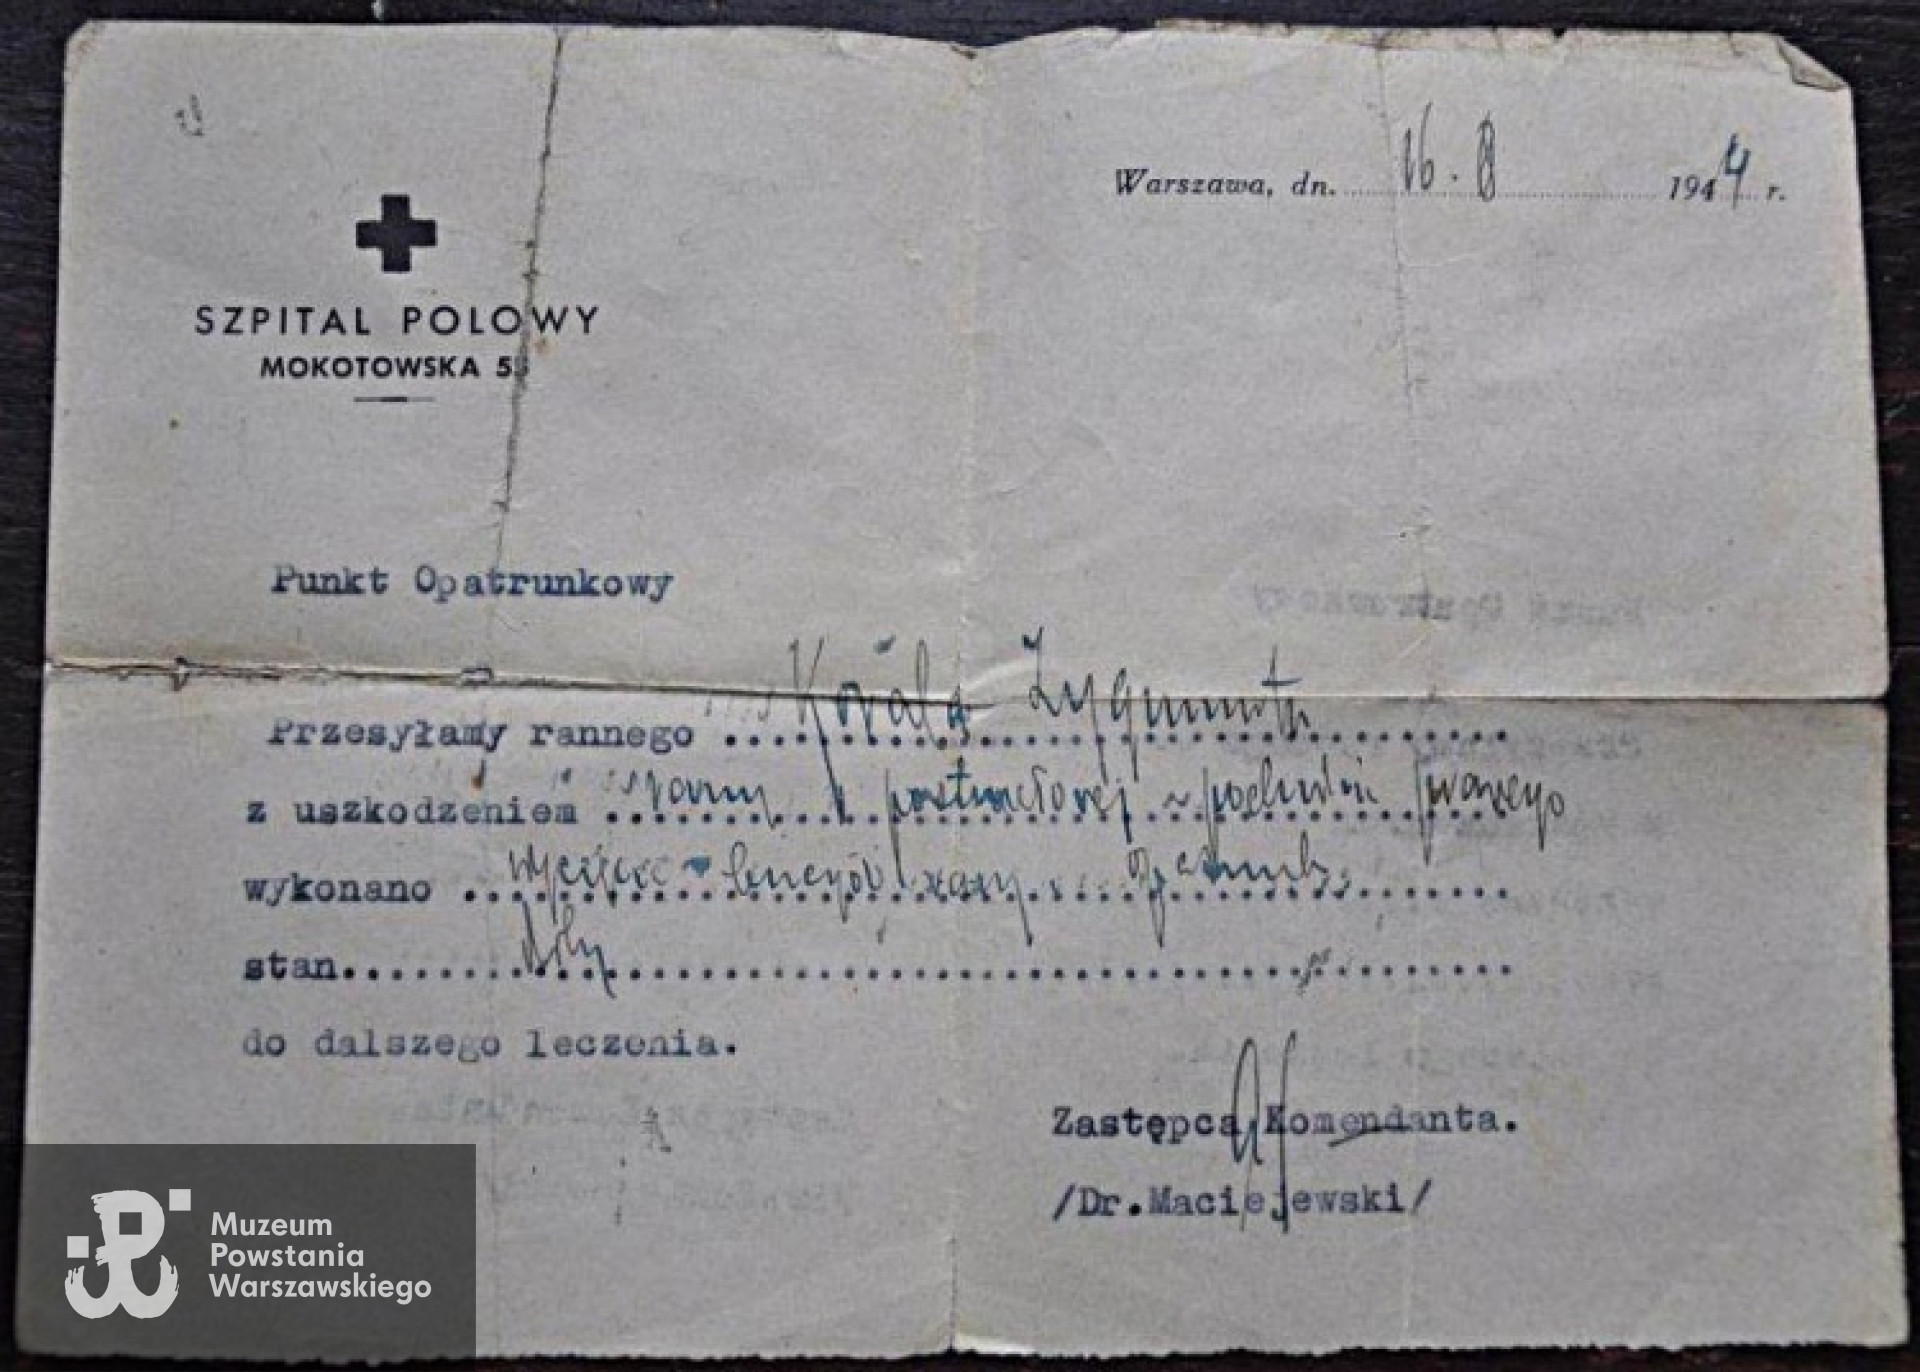 Warszawa, dn. 16.8 1944 r.
SZPITAL POLOWY
MOKOTOWSKA 55
Punkt Opatrunkowy
Przesyłamy rannego Zygmunta
z uszkodzeniem rany postrzałowej prawego
wykonano wycięcie brzegów rany
stan
do dalszego leczenia.
Zastępca Komendanta.
/Dr.Maciejewski/
Muzeum
Powstania
Warszawskiego